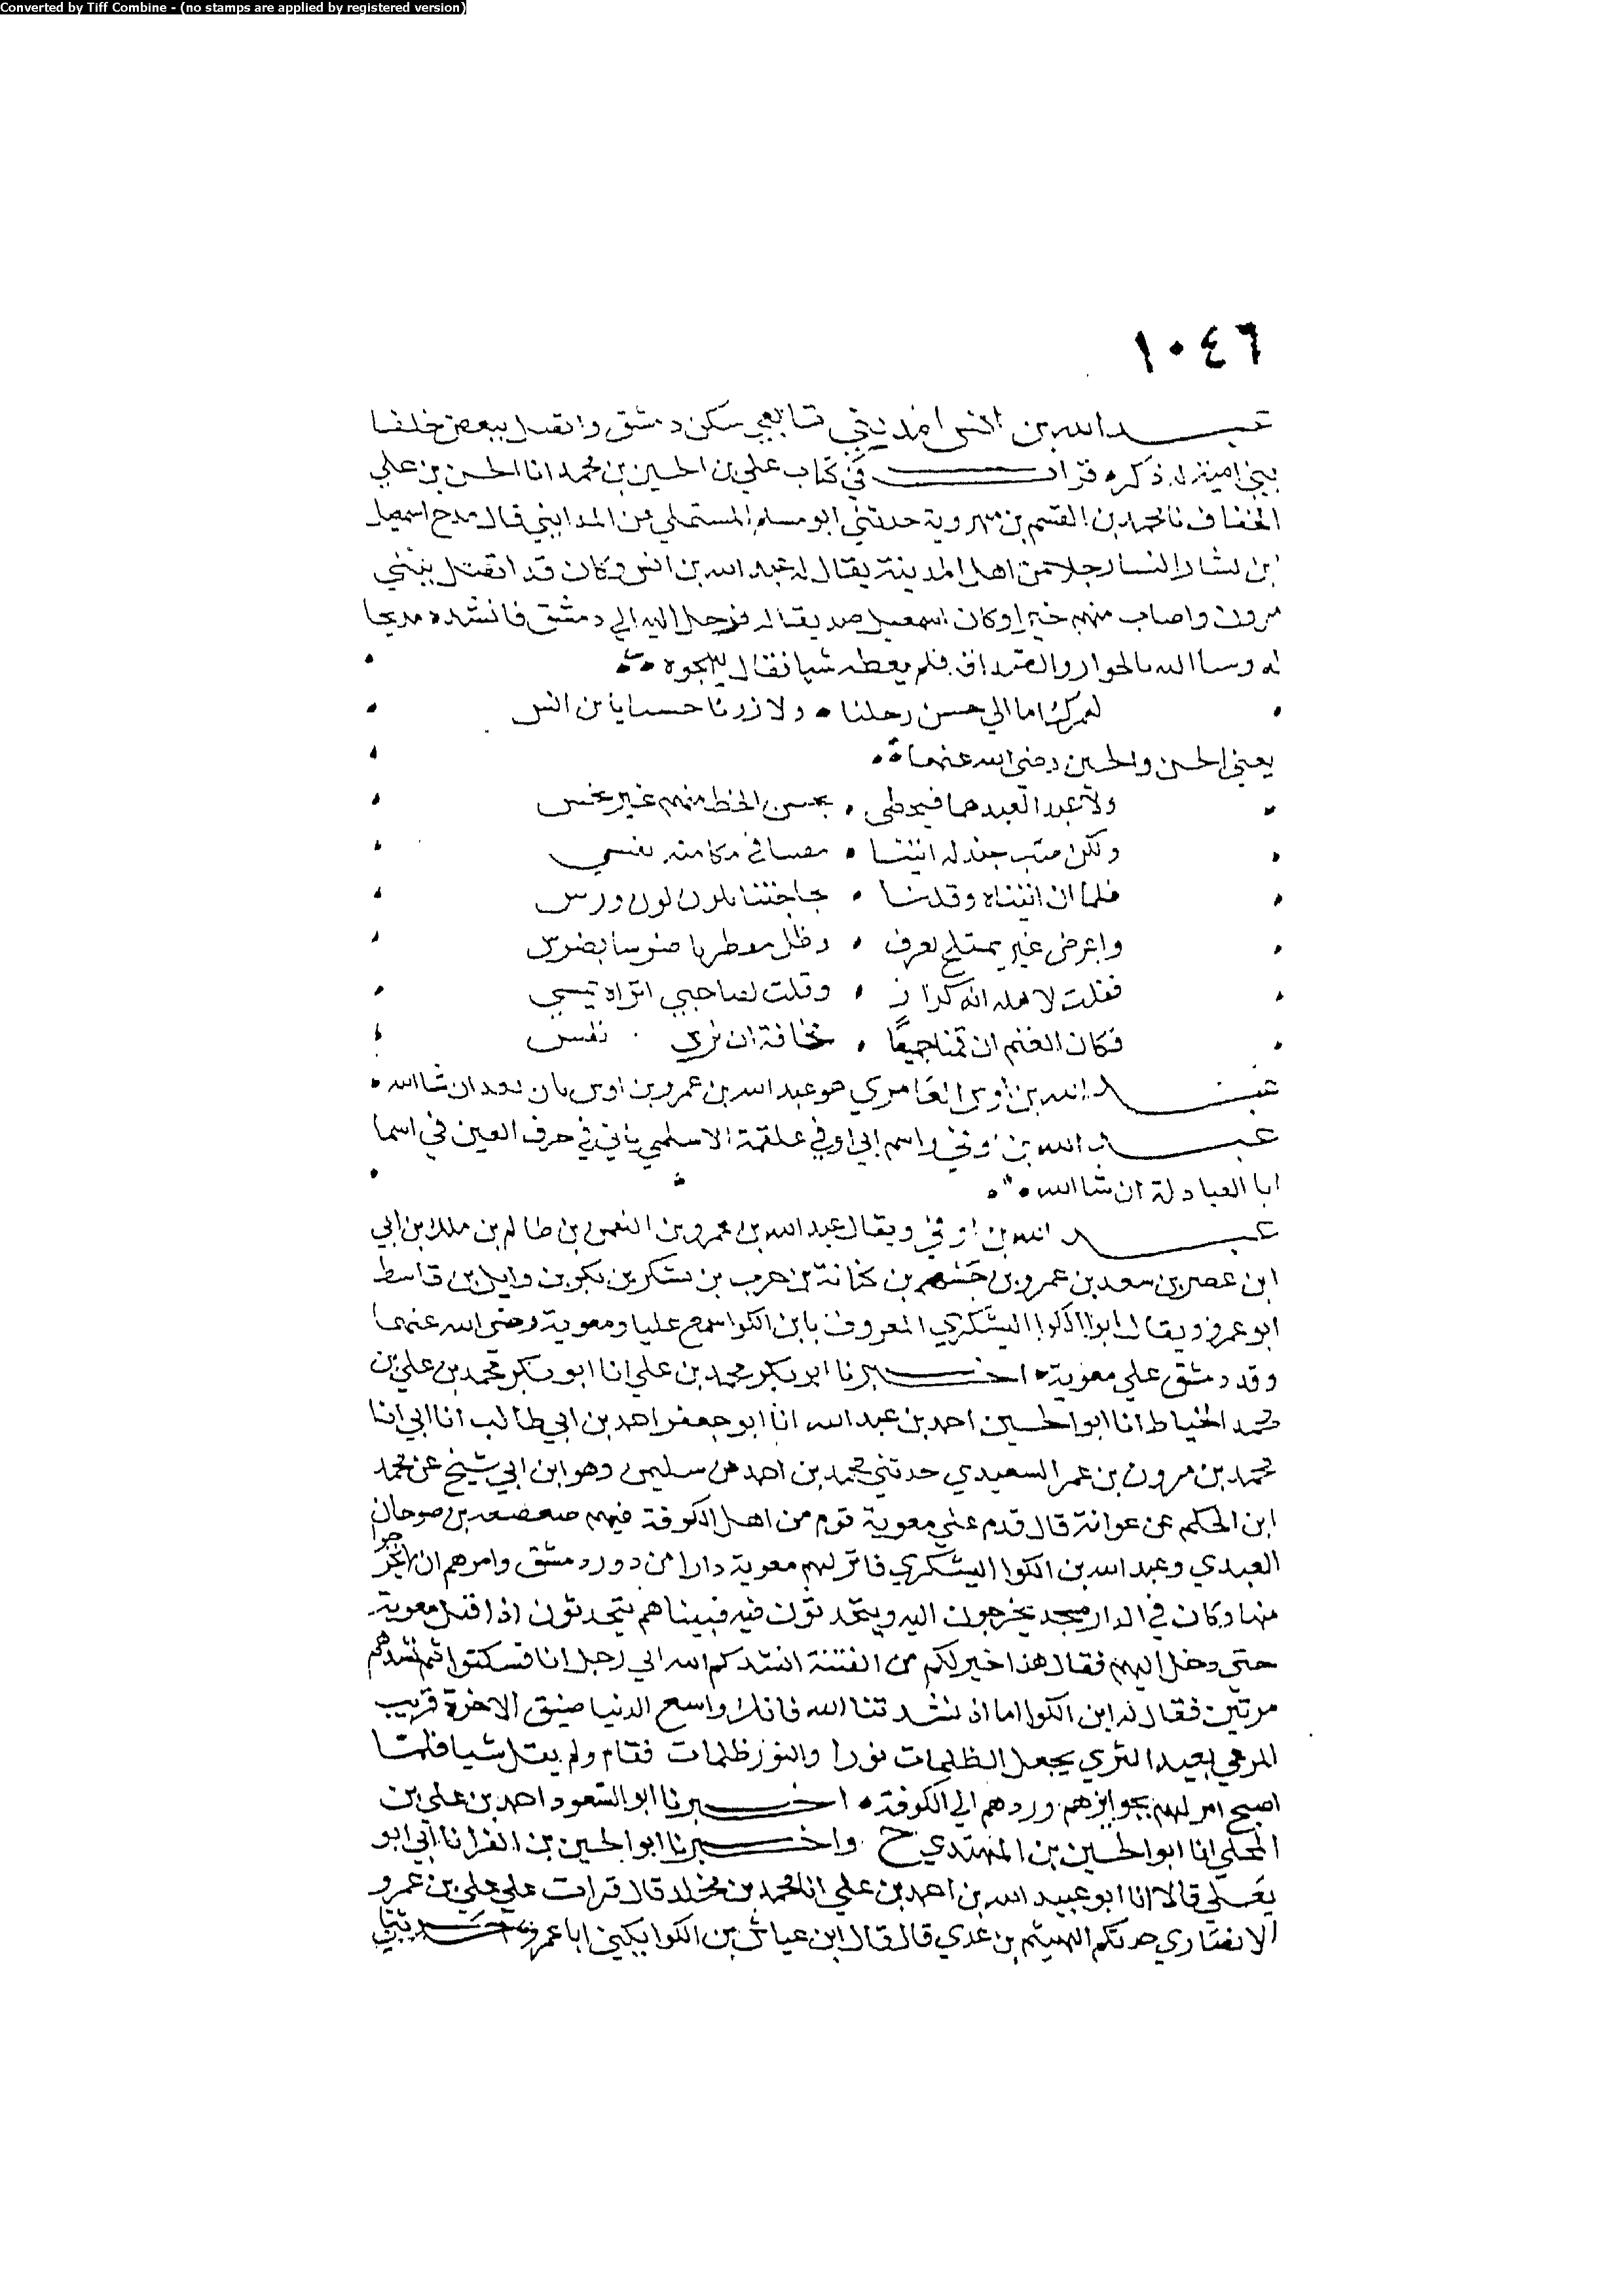 Converted by Tiff Combine - (no stamps are applied by registered version)
١٠٤٦
عبد الله بن انس المديني تابعي سكن دمشق واتصل ببعض خلفا
بني امية له ذكره قرات في كتاب علي بن الحسين بن محمد انا الحسن بن علي
الخفاف نا محمد بن القسم بن مهروية حدثني ابو مسلم المستملي عن المدايني قال مدح اسمعيل
ابن يشار النسا رجلا من اهل المدينة يقال له عبد الله بن انس وكان قد اتصل ببني
مرون واصاب منهم خيرا وكان اسمعيل صديقا له فرحل اليه الي دمشق فانشده مديحا
له وسا اليه بالجوار والصداقة فلم يعطه شيا فقال يهجوه
لعمرك ما الي حسن رحلنا ولا زرنا حسينا يا بن انس
يعني الحسن والحسين رضي الله عنهما
ولا عبد العبدهما فنحظي بحسن الحظ منهم غير بخس
ولكن ضب جندلة اتينا مضبا في مكامنه يفسي
فلما ان اتيناه وقلنا بحاجتنا تلون لون ورس
واعرض غير بمنبلج لعرف وظل مقطبا ضرسا بضرس
فقلت لاهله ابه كزاز وقلت لصاحبي اتراه يمسي
فكان الغنم ان قمنا جميعا مخافة ان نري نفس
عبد الله بن اوس العامري هو عبد الله بن عمرو بن اوس ياتي بعد ان شا الله
عبد الله بن اوفي واسم ابي اوفي علقمة الاسلمي ياتي في حرف العين في اسما
ابا العبادلة ان شا الله
عبد الله بن اوفي ويقال عبد الله بن عمرو بن النعمن بن ظالم بن ملك بن ابي
ابن عصر بن سعد بن عمرو بن جشهم بن كنانة بن حرب بن يشكر بن بكر بن وايل بن قاسط
ابو عمرو ويقال ابو الكوا اليشكري المعروف بابن الكوا سمع عليا ومعوية رضي الله عنهما
وقد دمشق علي معوية اخبرنا ابو بكر محمد بن علي انا ابو بكر محمد بن علي بن
محمد الخياط انا ابو الحسين احمد بن عبد الله انا ابو جعفر احمد بن ابي طالب انا ابي انا
محمد بن مرون بن عمر السعيدي حدثني محمد بن احمد بن سليمن وهو ابن ابي شيخ عن محمد
ابن الحكم عن عوانة قال قدم علي معوية قوم من اهل الكوفة فيهم صعصعه بن صوحان
العبدي وعبد الله بن الكوا اليشكري فانزلهم معوية دارا من دور دمشق وامرهم ان لا يخرجوا
منها وكان في الدار مسجد يخرجون اليه ويتحدثون فيه فبيناهم يتحدثون اذ اقبل معوية
حتي دخل اليهم فقال هذا خير لكم من الفتنة انشدكم الله اي رجل انا فسكتوا ثم نشدهم
مرتين فقال له ابن الكوا اما اذ نشدتنا الله فانك واسع الدنيا ضيق الاخرة قريب
المرعي بعيد الثري يجعل الظلمات نورا والنور ظلمات فقام ولم يقل شيا فلما
اصبح امر لهم بجوايزهم وردهم الي الكوفة اخبرنا ابو السعود احمد بن علي بن
المحلي انا ابو الحسين بن المهتدي ح واخبرنا ابو الحسين بن الفرا انا ابي ابو
يعلي قالا انا ابو عبيد الله بن احمد بن علي انا محمد بن مخلد قال قرات علي علي بن عمرو
الانصاري حدثكم الهيثم بن عدي قال قال ابن عياش بن الكوا يكني ابا عمرو حدثني